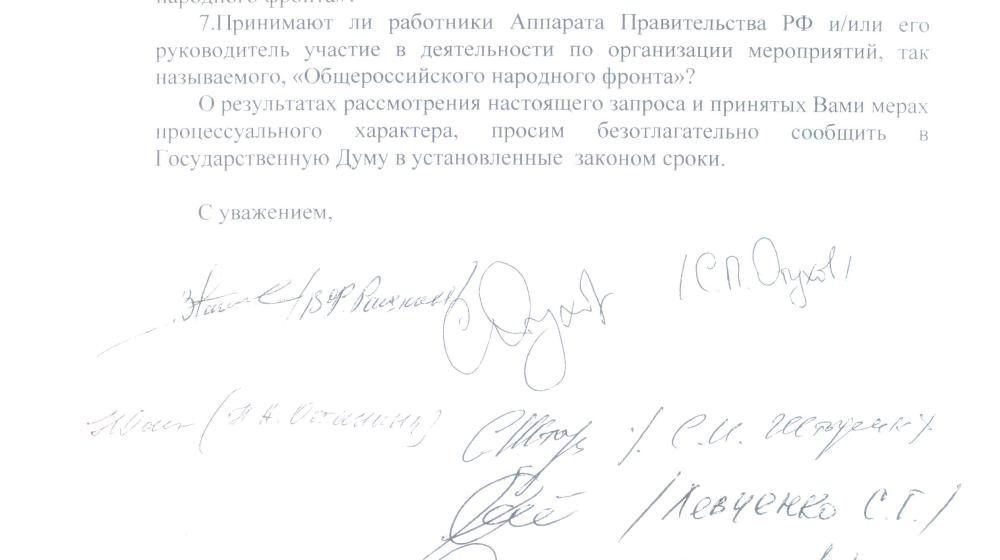 народного фронта»?
7.Принимают ли работники Аппарата Правительства РФ и/или его
руководитель участие в деятельности по организации мероприятий, так
называемого, «Общероссийского народного фронта»?
О результатах рассмотрения настоящего запроса и принятых Вами мерах
процессуального характера, просим безотлагательно сообщить в
Государственную Думу в установленные законом сроки.
С уважением,
/В.Ф. Рашкин/
/С.П. Обухов/
(Н.А. Останина)
/С.И. Штогрин/
/Левченко С.Г./